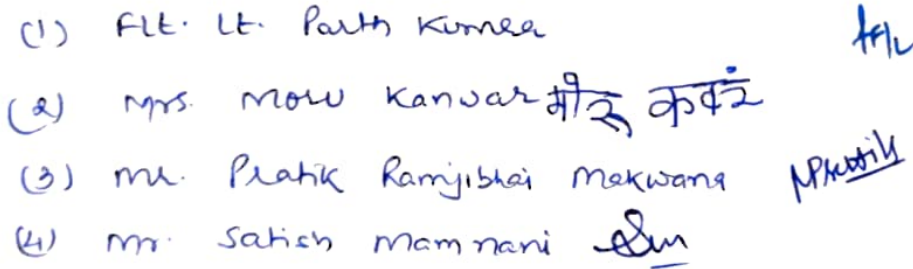 (1) Flt. Lt. Parth Kumar
(2) Mrs. Moru Kanvar मोरू कवंर
(3) Mr. Pratik Ramjibhai Makwana
(4) Mr. Satish Mamnani